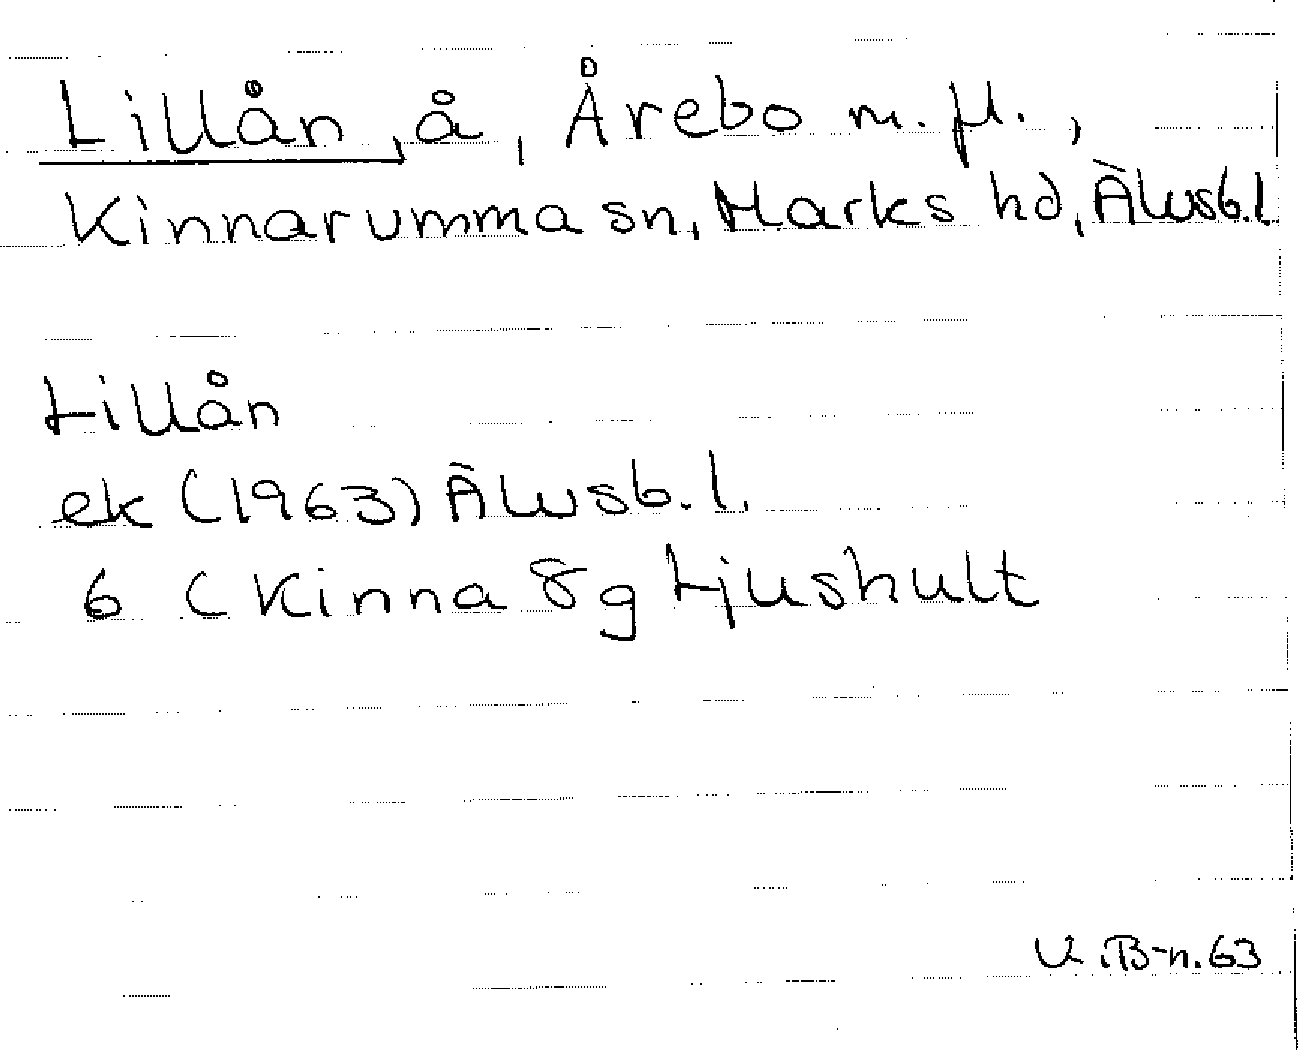 Lillån, å, Årebo m. fl.,
Kinnarumma sn, Marks hd, Älvsb.l.
Lillån
ek (1963) Älvsb. l.
6 C Kinna 8g Ljushult
U. B-n. 63